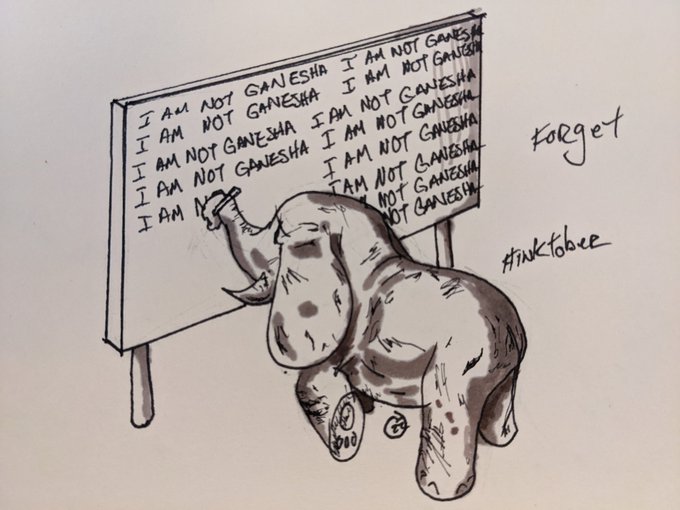 I AM NOT GANESHA I AM NOT GANESHA
I AM NOT GANESHA I AM NOT GANESHA
I AM NOT GANESHA I AM NOT GANESHA
I AM NOT GANESHA I AM NOT GANESHA
I AM N I AM NOT GANESHA
I AM NOT GANESHA
NOT GANESHA
NOT GANESHA
Forget
#inktober